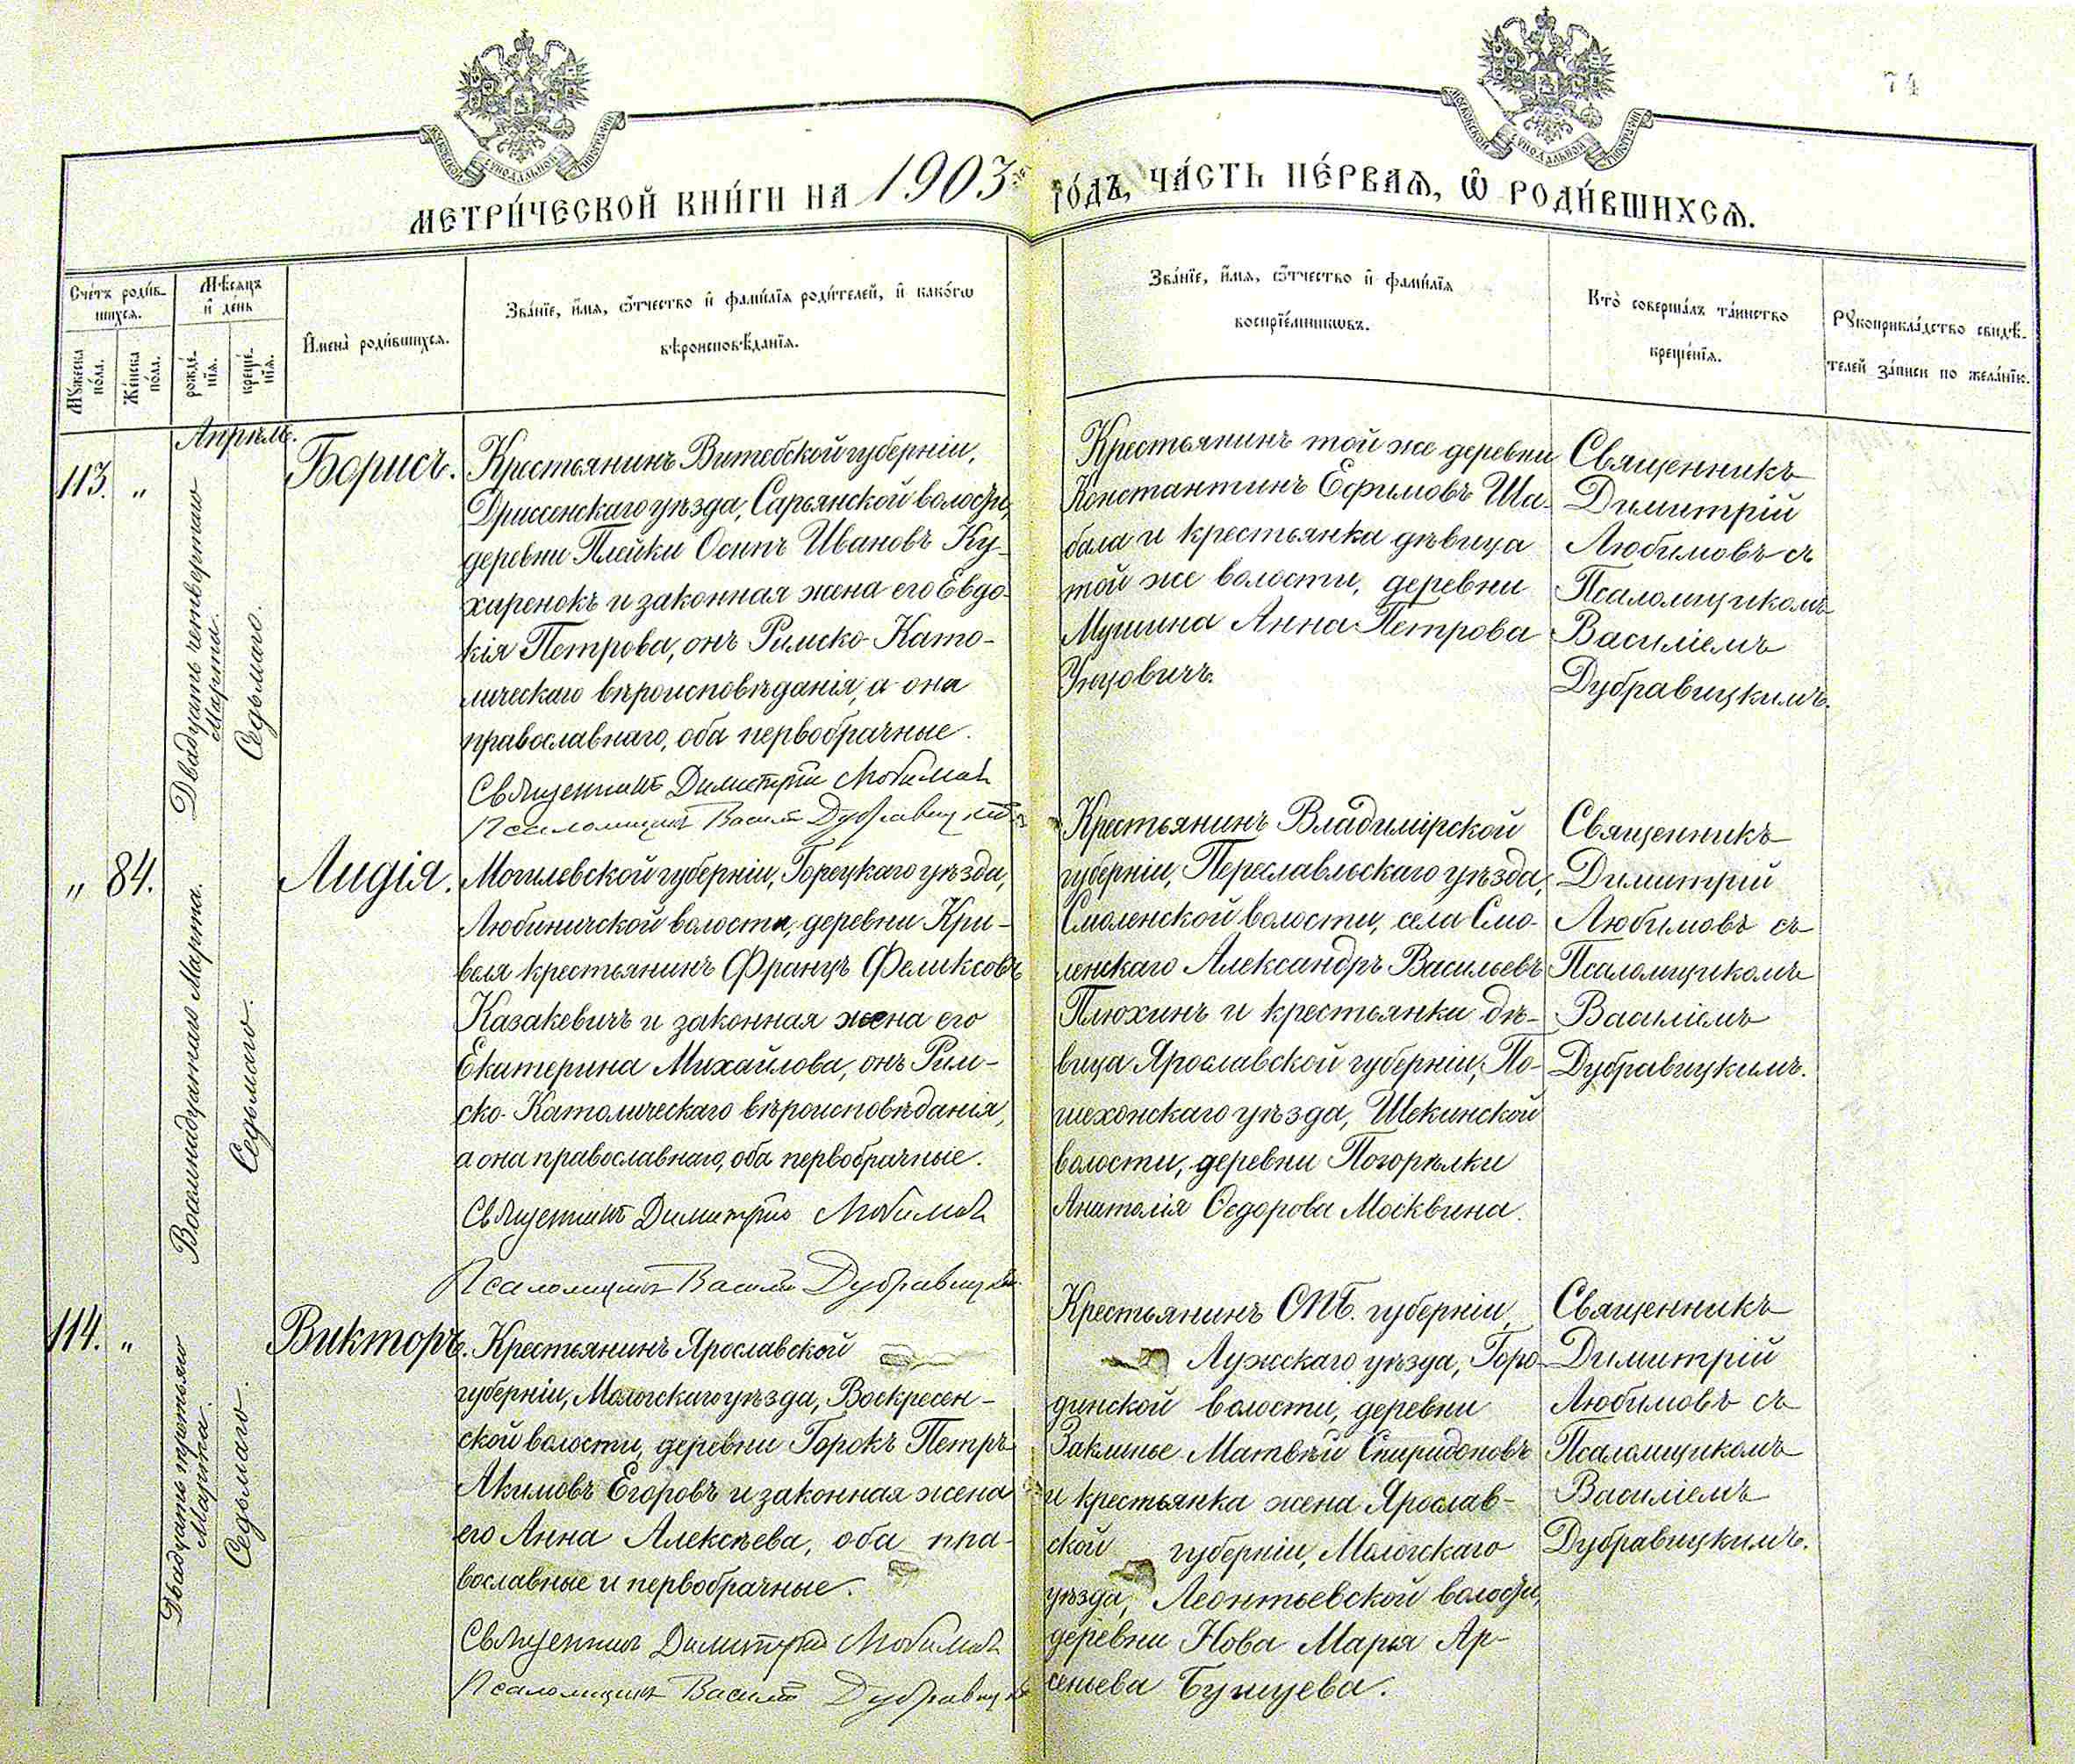 74
МОСКОВСКОЙ СѴНОДАЛЬНОЙ ТИПОГРАФІИ
МОСКОВСКОЙ СѴНОДАЛЬНОЙ ТИПОГРАФІИ
МЕТРИ́ЧЕСКОЙ КНИ́ГИ НА 1903й ГО́ДЪ, ЧА́СТЬ ПЕ́РВАЯ, Ѿ РОДИ́ВШИХСЯ.
Сче́тъ роди́в-
шихся.
Мꙋ́жеска
по́ла.
Же́нска
по́ла.
Мѣ́сяцъ
и҆ де́нь
рожде́-
нїя.
креще́-
нїя.
И҆мена̀ роди́вшихся.
Зва́нїе, и҆́мя, ѻ҆́тчество и҆ фами́лїя роди́телей, и҆ како́гѡ
вѣроисповѣ́данїя.
Зва́нїе, и҆́мя, ѻ҆́тчество и҆ фами́лїя
воспрїе́мникѡвъ.
Кто̀ соверша́лъ та́инство
креще́нїя.
Рꙋкоприкла́дство свидѣ́-
телей за́писи по жела́нїю.
Апрѣль.
113. "
Двадцать четвертаго
Марта.
Седьмаго.
Борисъ.
Крестьянинъ Витебской губерніи,
Дриссенскаго уѣзда, Сарьянской волости,
деревни Плейки Осипъ Ивановъ Ку-
харенокъ и законная жена его Евдо-
кія Петрова, онъ Римско-Като-
лическаго вѣроисповѣданія, а она
православнаго, оба первобрачные.
Священникъ Димитрій Любимовъ
Псаломщикъ Василій Дубравицкій
Крестьянинъ той же деревни
Константинъ Ефимовъ Ша-
бала и крестьянка дѣвица
той же волости, деревни
Мушина Анна Петрова
Священникъ
Димитрій
Любимовъ съ
Псаломщикомъ
Василіемъ
Дубравицкимъ.
" 84.
Восемнадцатаго Марта.
Седьмаго.
Лидія.
Могилевской губерніи, Горецкаго уѣзда,
Любиничской волости, деревни Кри-
веля крестьянинъ Францъ Феликсовъ
Казакевичъ и законная жена его
Екатерина Михайлова, онъ Рим-
ско-Католическаго вѣроисповѣданія,
а она православнаго, оба первобрачные.
Священникъ Димитрій Любимовъ
Псаломщикъ Василій Дубравицкій
Крестьянинъ Владимірской
губерніи, Переславльскаго уѣзда,
Смоленской волости, села Смо-
ленскаго Александръ Васильевъ
Плюхинъ и крестьянка дѣ-
вица Ярославской губерніи, По-
шехонскаго уѣзда, Щекинской
волости, деревни Погорѣлки
Анатолія Ѳедорова Москвина.
Священникъ
Димитрій
Любимовъ съ
Псаломщикомъ
Василіемъ
Дубравицкимъ.
114. "
Двадцать третьяго
Марта.
Седьмаго.
Викторъ.
Крестьянинъ Ярославской
губерніи, Мологскаго уѣзда, Воскресен-
ской волости, деревни Горокъ Петръ
Акимовъ Егоровъ и законная жена
его Анна Алексѣева, оба пра-
вославные и первобрачные.
Священникъ Димитрій Любимовъ
Псаломщикъ Василій Дубравицкій
Крестьянинъ СПБ. губерніи,
Лужскаго уѣзда, Горо-
динской волости, деревни
Заклинье Матвѣй Спиридоновъ
и крестьянка жена Ярослав-
ской губерніи, Мологскаго
уѣзда, Леонтьевской волости,
деревни Нова Марія Ар-
сеньева
Священникъ
Димитрій
Любимовъ съ
Псаломщикомъ
Василіемъ
Дубравицкимъ.